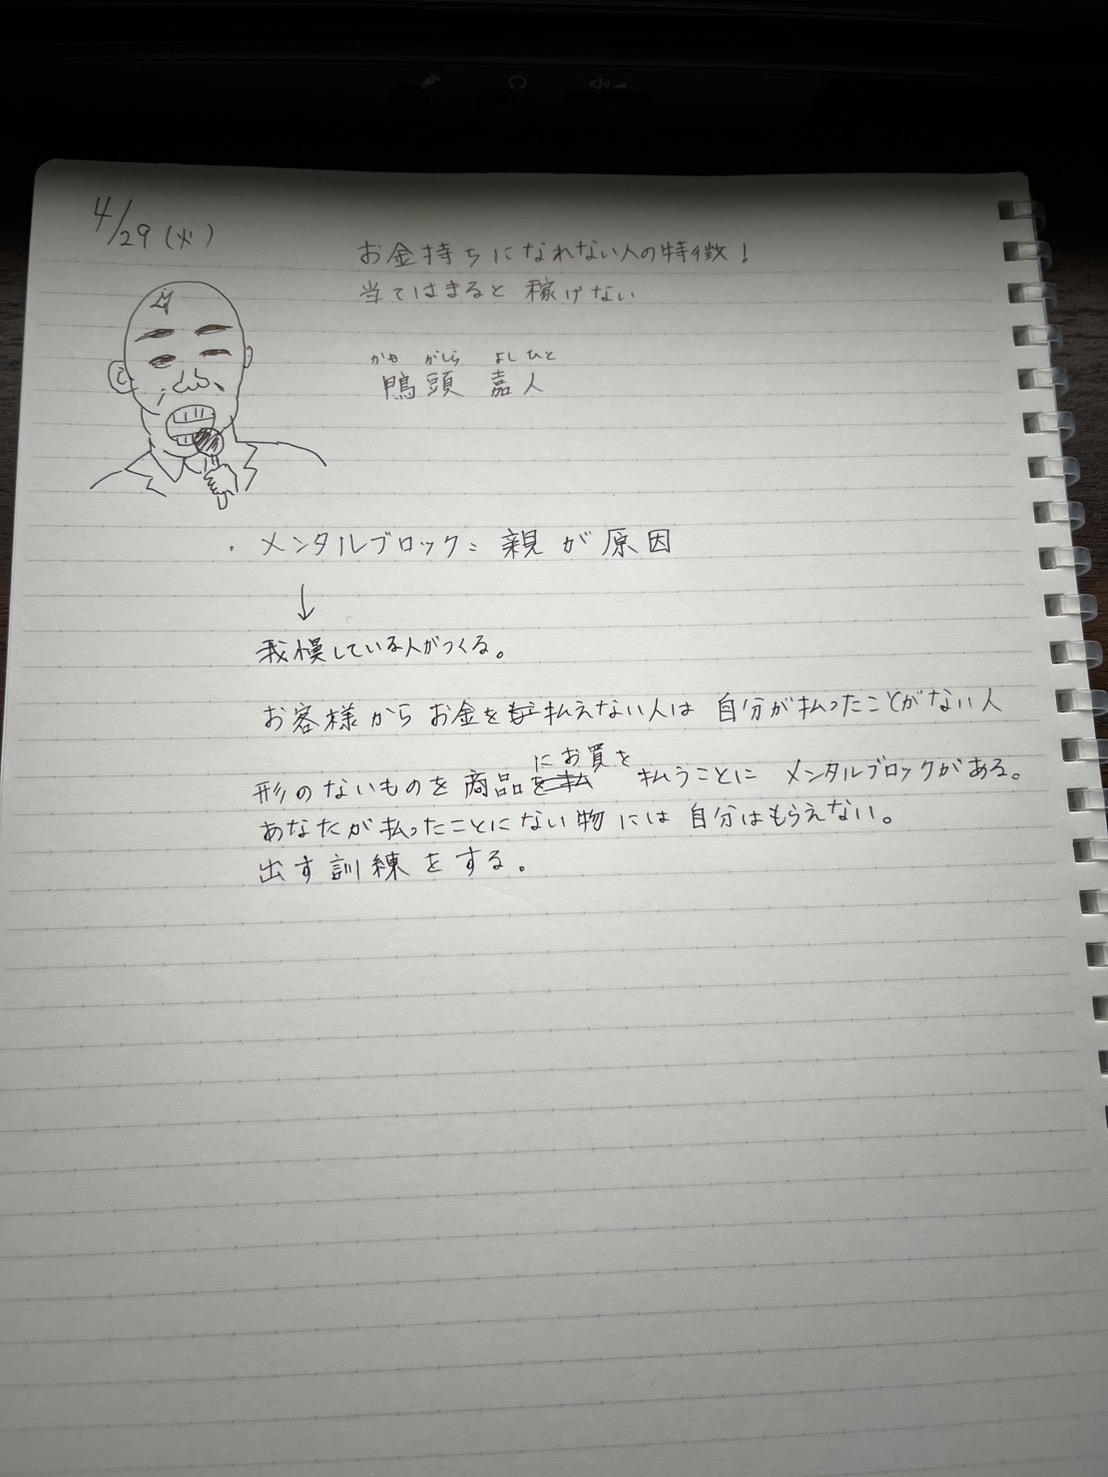 4/29(火)
お金持ちになれない人の特徴!
当てはまると 稼げない
かも がしら よし ひと
鴨頭 嘉人
・メンタルブロック: 親が原因
↓
我慢している人がつくる。
お客様からお金を払えない人は 自分が払ったことがない人
にお買を
形のないものを商品を払 払うことに メンタルブロックがある。
あなたが払ったことにない物には自分はもらえない。
出す訓練をする。